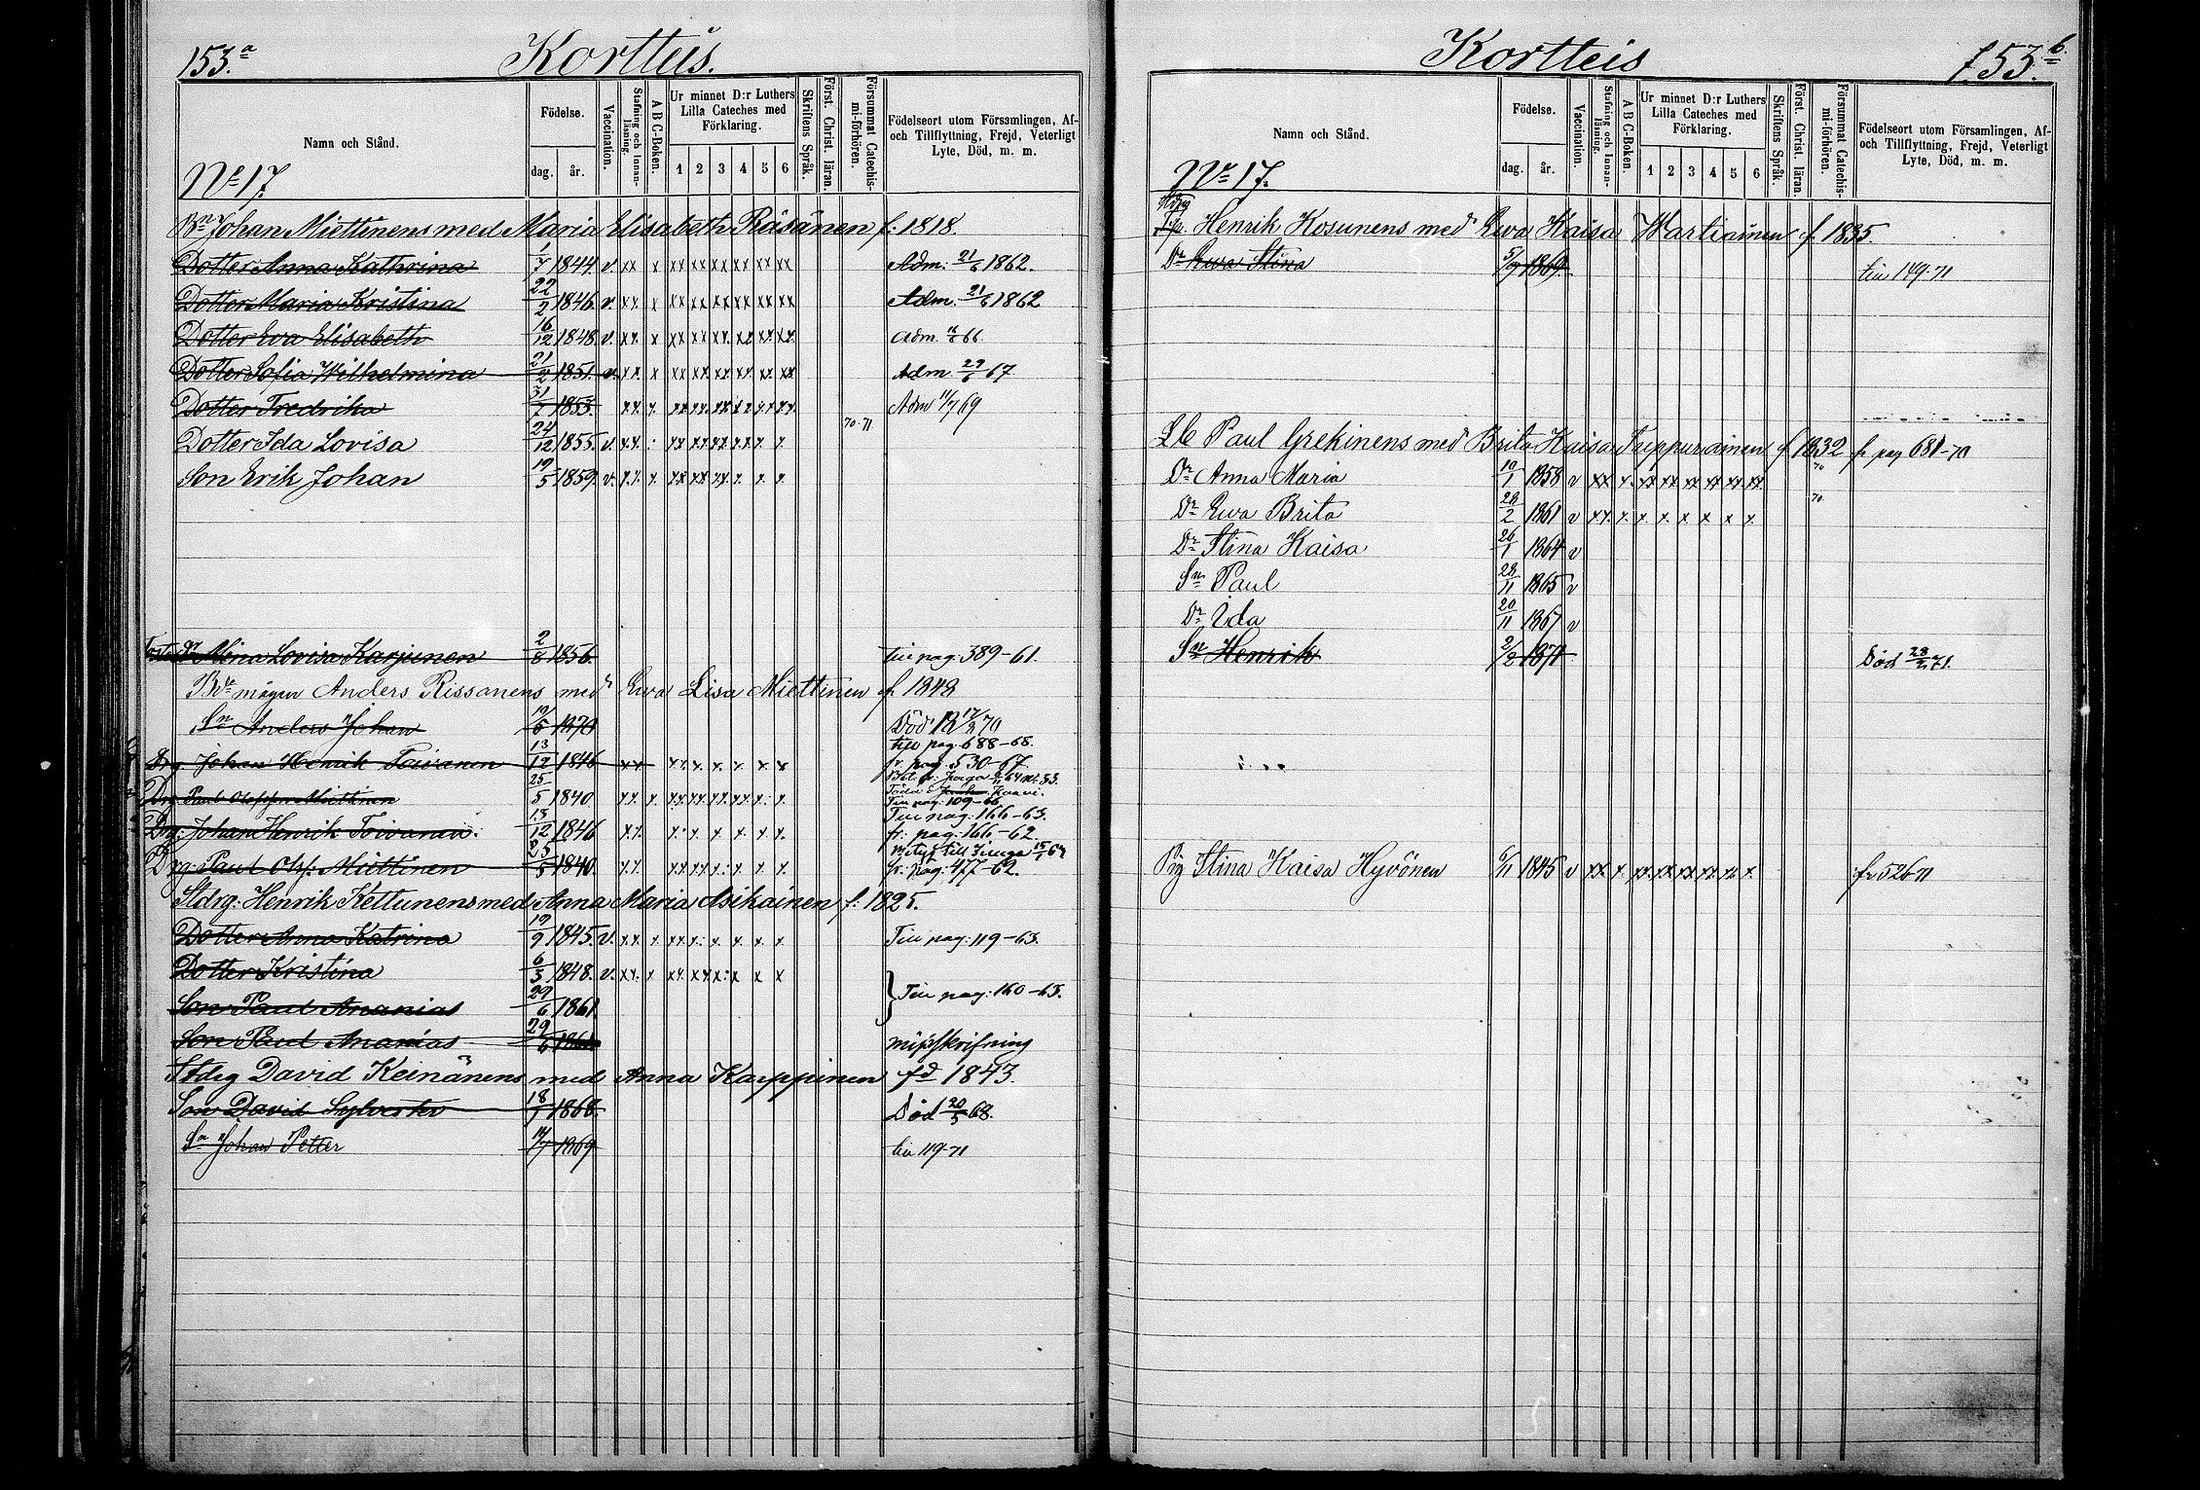 153.a
Korttus.
Namn och Stånd.
Födelse.
dag.
år.
Vaccination.
Stafning och Innan-läsning.
A B C-Boken.
Ur minnet D:r Luthers Lilla Cateches med Förklaring.
1 2 3 4 5 6
Skriftens Språk.
Först. Christ. läran.
Försummat Catechis-mi-förhören.
Födelseort utom Församlingen, Af- och Tillflyttning, Frejd, Veterligt Lyte, Död, m. m.
No 17.
Bn Johan Miettinens med Maria Elisabeth Räsänen f. 1818.
Dotter Anna Kathrina 1/7 1844 v. xx x xx xx xx xx xx xx Adm. 21/6 1862.
Dotter Maria Kristina 22/2 1846 v. xx x xx xx xx xx xx xx Adm. 21/6 1862
Dotter Eva Elisabeth 16/12 1848 v. xx x xx xx xx xx xx xx Adm. 66.
Dotter Sofia Wilhelmina 21/2 1851 v. xx x xx xx xx xx xx xx Adm. 29/6 67.
Dotter Fredrika 31/7 1853 xx x xx xx xx xx xx xx Adm 11/7 69
Dotter Ida Lovisa 24/12 1855 v. xx xx xx xx xx x x 70-71
Son Erik Johan 19/5 1859 v. xx x xx xx xx x x x
Mina Lovisa Karjunen 2/8 1856 till pag. 389-61.
måger Anders Rissanens med Ewa Lisa Miettinen f 1848
Sn Anders Johan 19/5 1870 Död 70
till pag. 688-68.
Drg. Johan Henrik Toivanen 13/12 1846 xx xx x x x x x fr. pag. 530-67.
Drg Paul Miettinen 25/5 1840 xx x xx xx xx xx x x
Till pag. 109-66
Till pag. 166-63.
Drg. Johan Henrik Toivanen 13/12 1846 xx x x x x x x fr. pag. 166-62.
Drg. Paul Olof Miettinen 25/5 1840 xx xx xx x x x x fr. pag. 477-62.
Stdrg. Henrik Kettunens med Anna Maria Asikainen f. 1825.
Dotter Anna Katrina 19/9 1845 v. xx x xx x x x x x Till pag. 119-63.
Dotter Kristina 6/5 1848 v. xx x xx xx x x x x
Son Paul Ananias 29/6 1861 Till pag: 160-63.
Son Paul Ananias 29/6 1861 misskrifning
Stdrg David Keinänens med Anna Karppinen fd 1843.
Son David Sylvester 18/1 1868 Död 20/5 68.
Sn Johan Petter 14/7 1869 till 119-71
Kortteis
153.b
Namn och Stånd.
Födelse.
dag.
år.
Vaccination.
Stafning och Innan-läsning.
A B C-Boken.
Ur minnet D:r Luthers Lilla Cateches med Förklaring.
1 2 3 4 5 6
Skriftens Språk.
Först. Christ. läran.
Försummat Catechis-mi-förhören.
Födelseort utom Församlingen, Af- och Tillflyttning, Frejd, Veterligt Lyte, Död, m. m.
No 17.
Henrik Kosunens med Ewa Kaisa Wartiainen f. 1835.
Dr Ewa Stina 5/9 1869 till 149-71
Lb Paul Grekinens med Brita Kaisa Tuppurainen f 1832 fr pag 681-70
Dr Anna Maria 10/1 1858 v xx x xx xx xx xx xx xx 70
Dr Ewa Brita 28/2 1861 v xx x x x x x x x 70
Dr Stina Kaisa 26/1 1864 v
Sn Paul 28/11 1865 v
Dr Ida 20/11 1867 v
Sn Henrik 2/2 1871 Död 71.
Pig Stina Kaisa Hyvönen 6/11 1845 v xx x xx xx xx xx xx x fr 526 71